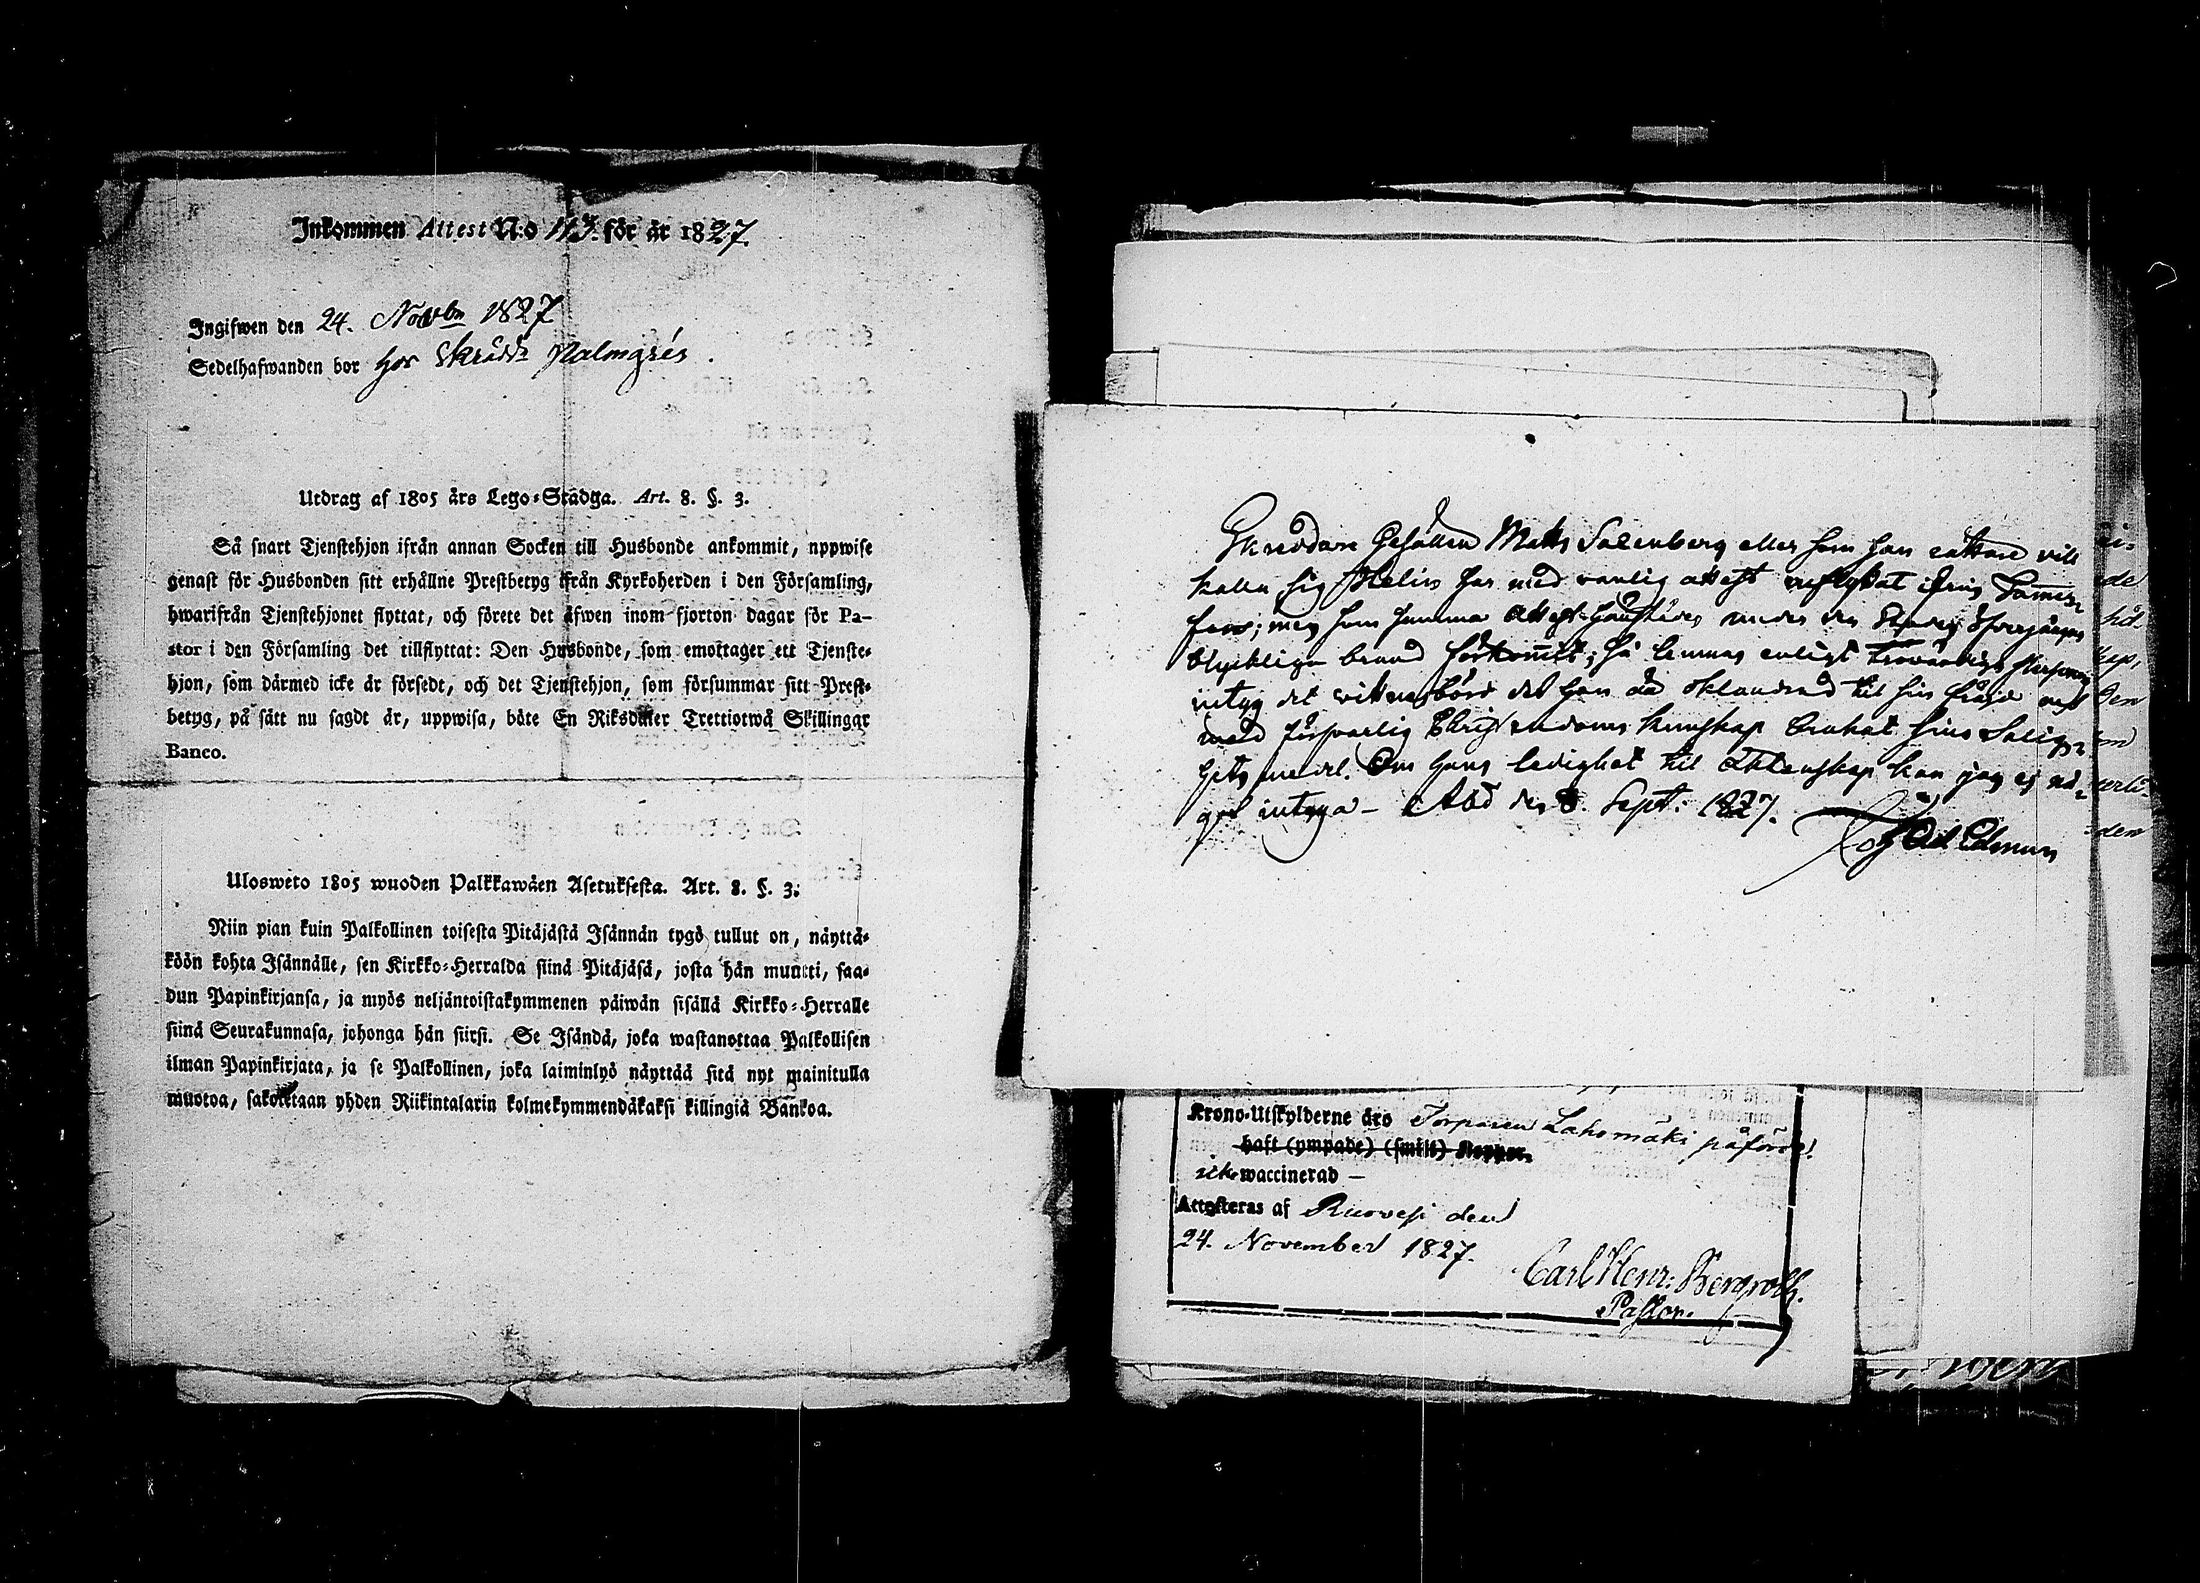 Inkommen Attest N:o 113. för år 1827.
Ingifwen den 24. Novbr 1827
Sedelhafwanden bor hos Skrädd: Palmgrés.
Utdrag af 1805 års Lego-Stadga. Art. 8. §. 3.
Så snart Tjenstehjon ifrån annan Socken till Husbonde ankommit, uppwise
genast för Husbonden sitt erhållne Prestbetyg ifrån Kyrkoherden i den Församling,
hwarifrån Tjenstehjonet flyttat, och förete det äfwen inom fjorton dagar för Pa-
stor i den Församling det tillflyttat: Den Husbonde, som emottager ett Tjenste-
hjon, som därmed icke är försedt, och det Tjenstehjon, som försummar sitt Prest-
betyg, på sätt nu sagdt är, uppwisa, böte En Riksdaler Trettiotwå Skillingar
Banco.
Ulosweto 1805 wuoden Palkkawäen Asetuksesta. Art. 8. §. 3.
Niin pian kuin Palkollinen toisesta Pitäjästä Isännän tygö tullut on, näyttä-
köön kohta Isännälle, sen Kirkko-Herralda siinä Pitäjäsä, josta hän muutti, saa-
dun Papinkirjansa, ja myös neljäntoistakymmenen päiwän sisällä Kirkko-Herralle
siinä Seurakunnasa, johonga hän siirsi. Se Isändä, joka wastanottaa Palkollisen
ilman Papinkirjata, ja se Palkollinen, joka laiminlyö näyttää sitä nyt mainitulla
muotoa, sakotetaan yhden Riikintalarin kolmekymmendäkaksi killingiä Bankoa.
Skreddare Gesällen Matts Salenberg eller som han rättare vill
kalla sig Melin har med vanlig attest inflyttat ifrån
men som samma attest under den
olyckliga brand förkommit; så lemnas enligt trovärdige Personers
intyg det witnesbörd det han är oklandrad til sin fräjd och
med försvarlig Christendoms kunskap brukat sina Salig-
hets medel. Om hans ledighet til Äktenskap kan jag ej nå-
got intyga - Åbo den 8. Sept. 1827.
Edman
Krono-Utskylderne äro Torparen Lahomäki påförde!
haft (ympade) (smitt) Koppor.
ick waccinerad —
Attesteras af Ruovesi den
24. November 1827.
Carl Henr: Bergroth.
Pastor.